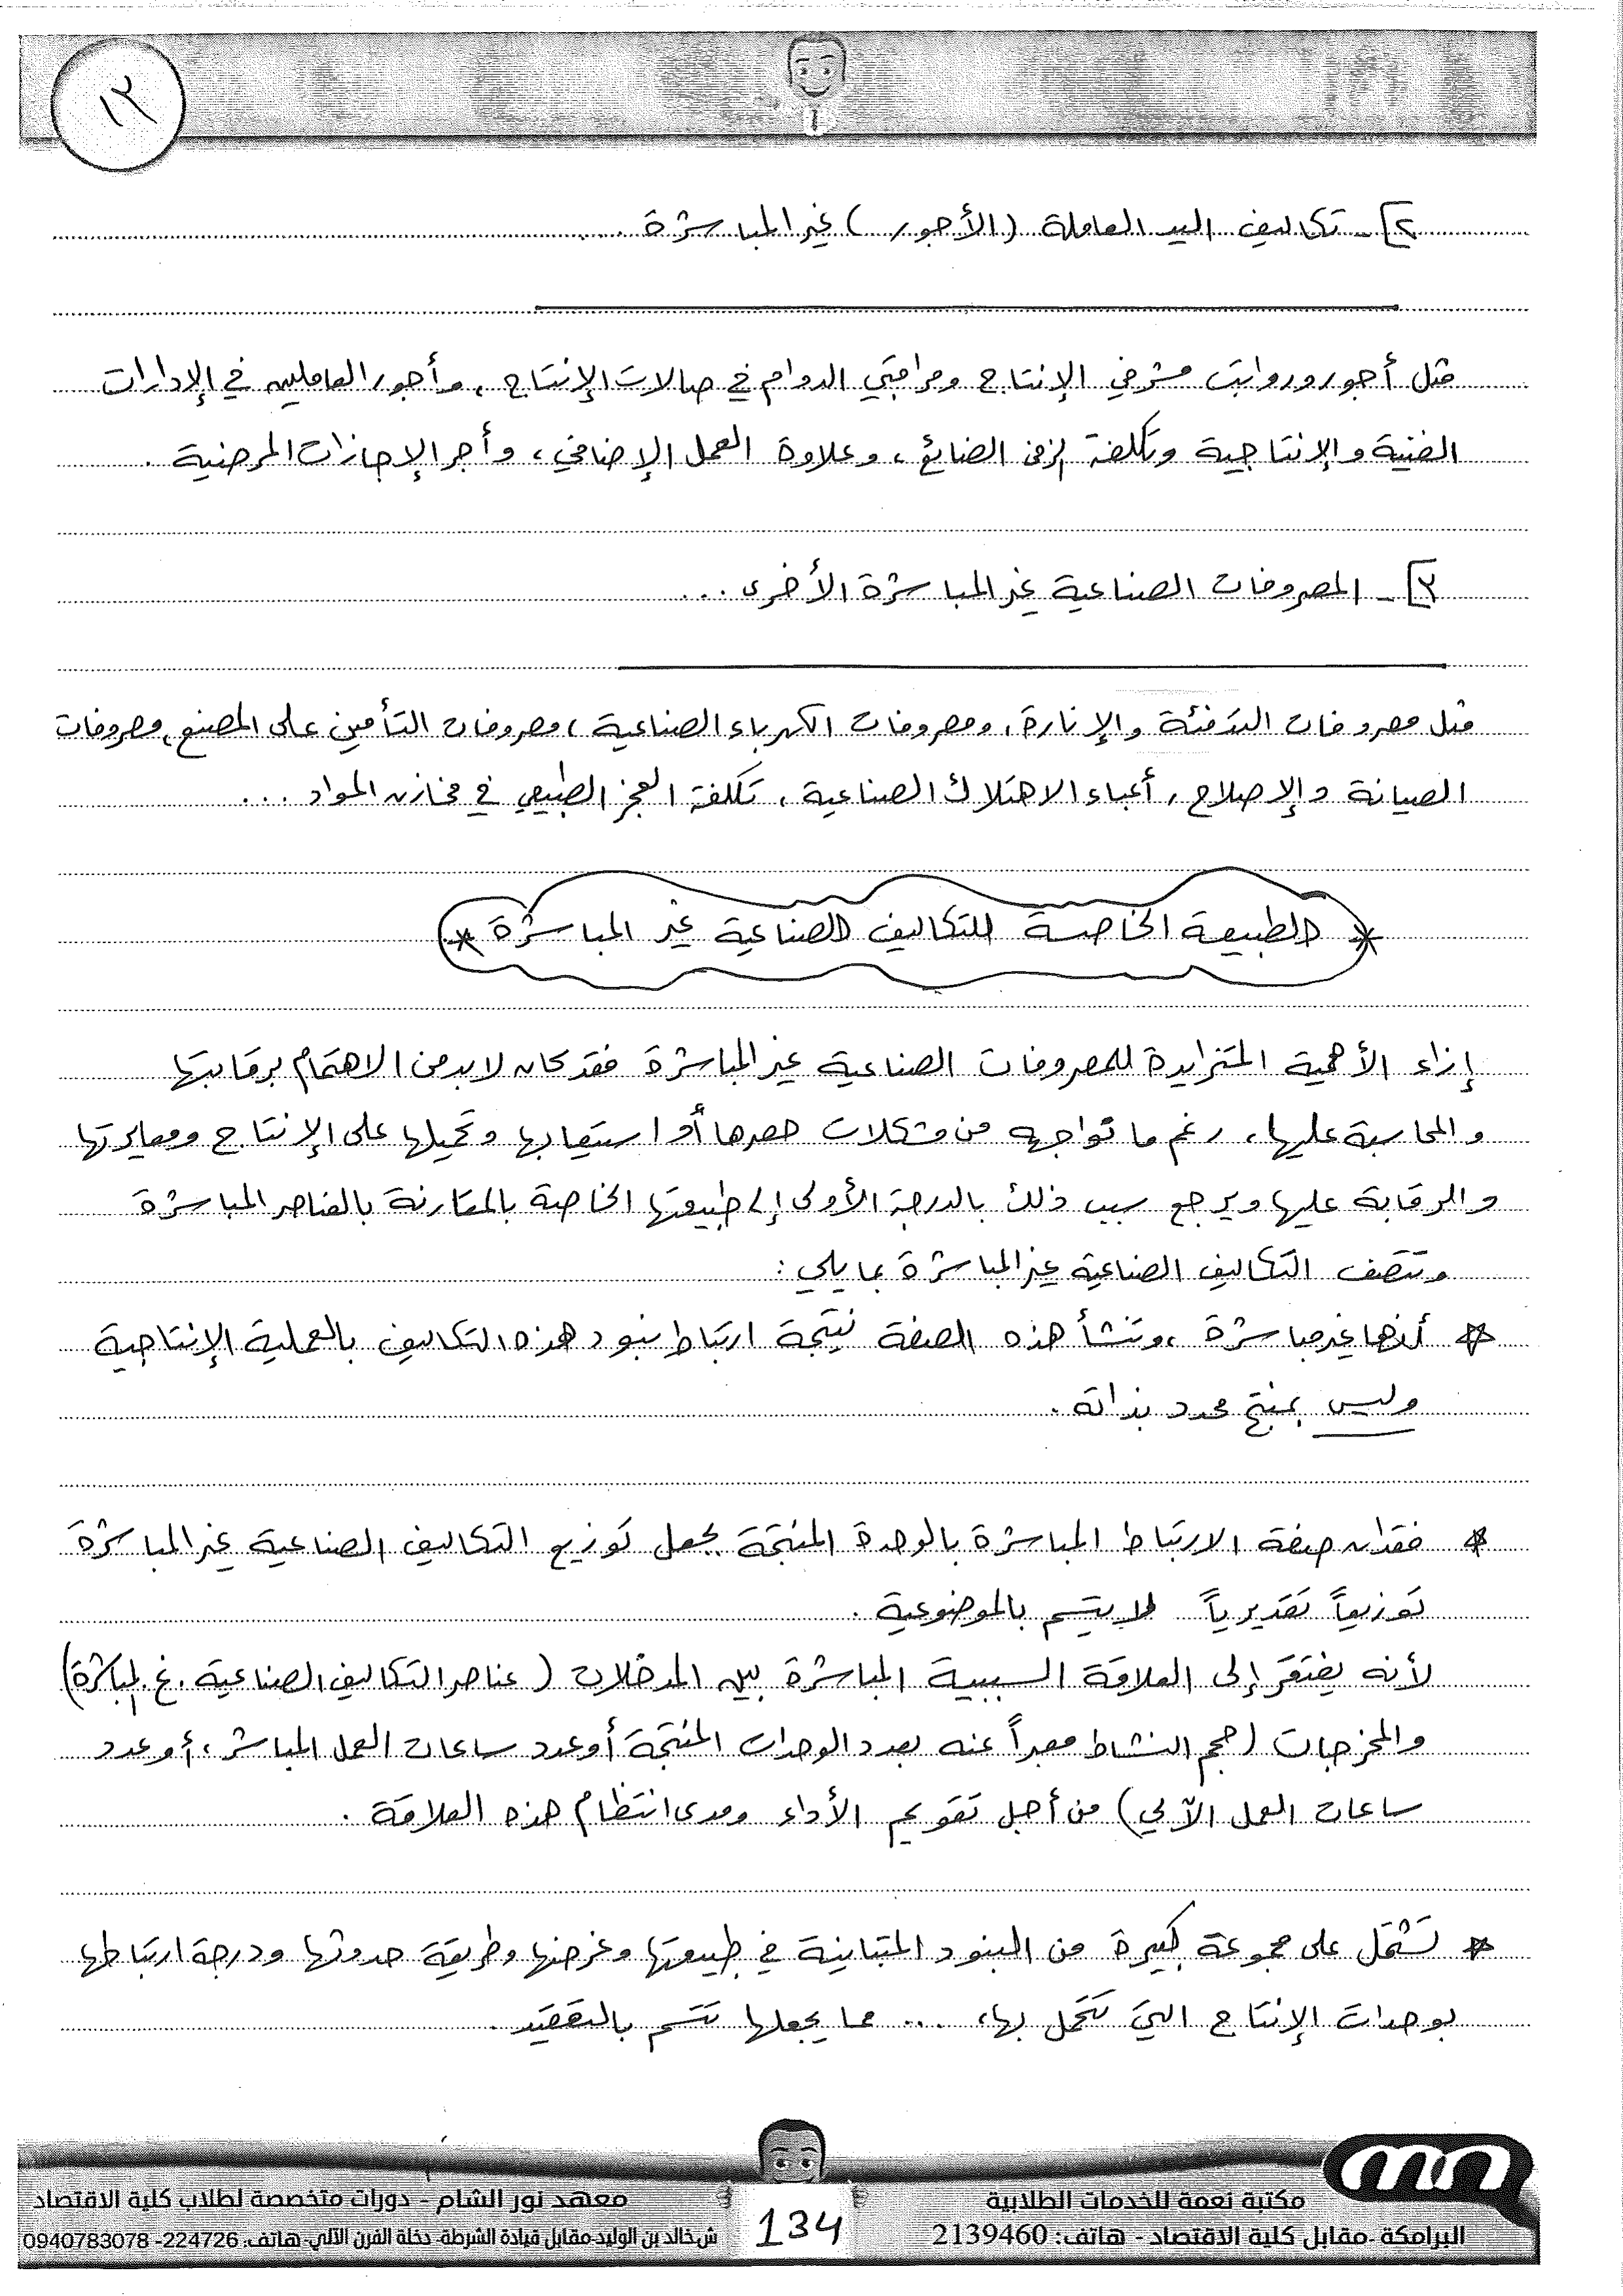 ١٢
٢] - تكاليف اليد العاملة (الأجور) غير المباشرة ...
مثل أجور ورواتب مشرفي الإنتاج ومراقبي الدوام في صالات الإنتاج ، وأجور العاملين في الإدارات
الفنية والإنتاجية وتكلفة الزمن الضائع ، وعلاوة العمل الإضافي ، وأجر الإجازات المرضية .
٣] - المصروفات الصناعية غير المباشرة الأخرى ...
مثل مصروفات التدفئة والإنارة ، ومصروفات الكهرباء الصناعية ، ومصروفات التأمين على المصنع ، ومصروفات
الصيانة والإصلاح ، أعباء الاهتلاك الصناعية ، تكلفة العجز الطبيعي في مخازن المواد ...
* الطبيعة الخاصة للتكاليف الصناعية غير المباشرة *
إزاء الأهمية المتزايدة للمصروفات الصناعية غير المباشرة فقد كان لابد من الاهتمام برقابتها
والمحاسبة عليها ، رغم ما تواجهه من مشكلات حصرها أو استيعابها وتحميلها على الإنتاج ومعايرتها
والرقابة عليها ويرجع سبب ذلك بالدرجة الأولى إلى طبيعتها الخاصة بالمقارنة بالعناصر المباشرة
وتتصف التكاليف الصناعية غير المباشرة بما يلي :
* أنها غير مباشرة ، وتنشأ هذه الصفة نتيجة ارتباط بنود هذه التكاليف بالعملية الإنتاجية
وليس بمنتج محدد بذاته .
* فقدان صفة الارتباط المباشرة بالوحدة المنتجة يجعل توزيع التكاليف الصناعية غير المباشرة
توزيعاً تقديرياً لا يتسم بالموضوعية .
لأنه يفتقر إلى العلاقة السببية المباشرة بين المدخلات (عناصر التكاليف الصناعية . غ . المباشرة)
والمخرجات (حجم النشاط معبراً عنه بعدد الوحدات المنتجة أو عدد ساعات العمل المباشر ، أو عدد
ساعات العمل الآلي) من أجل تقويم الأداء ومدى انتظام هذه العلاقة .
* تشتمل على مجموعة كبيرة من البنود المتباينة في طبيعتها وغرضها وطريقة حدوثها ودرجة ارتباطها
بوحدات الإنتاج التي تتحمل بها ، ... مما يجعلها تتسم بالتعقيد .
مكتبة نعمة للخدمات الطلابية
البرامكة - مقابل كلية الاقتصاد - هاتف: 2139460
134
معهد نور الشام - دورات متخصصة لطلاب كلية الاقتصاد
ش خالد بن الوليد-مقابل قيادة الشرطة- دخلة الفرن الآلي-هاتف: 224726- 0940783078